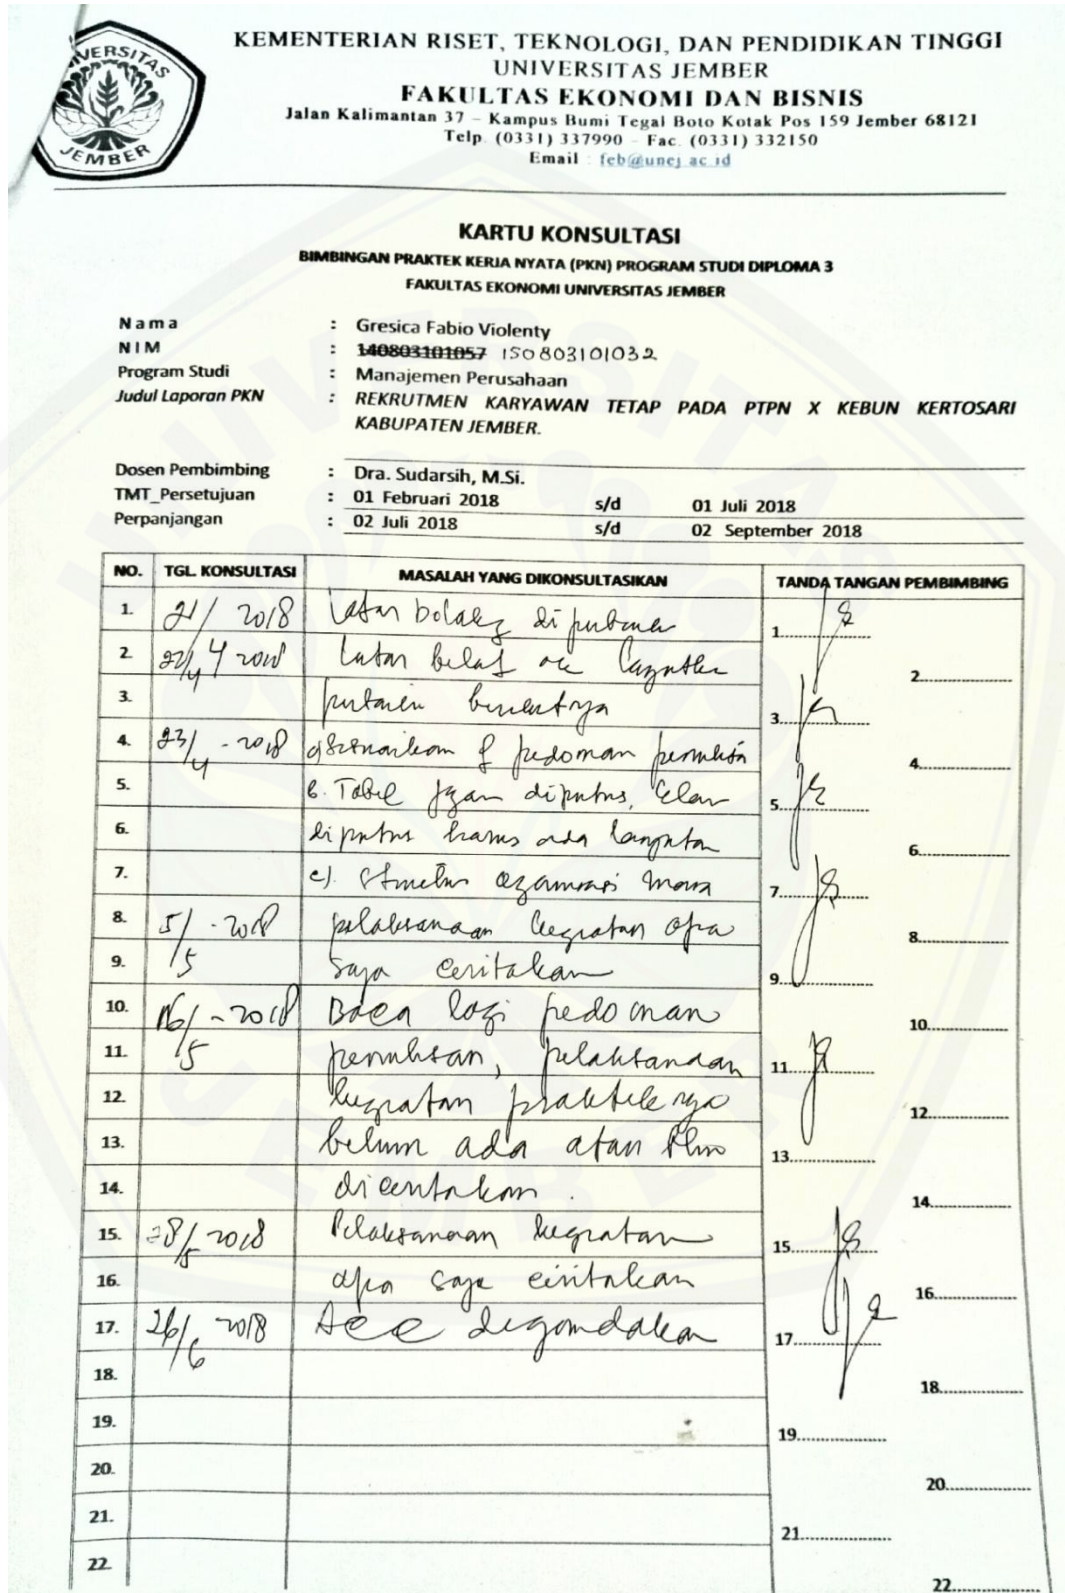 UNIVERSITAS
JEMBER
KEMENTERIAN RISET, TEKNOLOGI, DAN PENDIDIKAN TINGGI
UNIVERSITAS JEMBER
FAKULTAS EKONOMI DAN BISNIS
Jalan Kalimantan 37 – Kampus Bumi Tegal Boto Kotak Pos 159 Jember 68121
Telp. (0331) 337990 – Fac. (0331) 332150
Email : feb@unej.ac.id
KARTU KONSULTASI
BIMBINGAN PRAKTEK KERJA NYATA (PKN) PROGRAM STUDI DIPLOMA 3
FAKULTAS EKONOMI UNIVERSITAS JEMBER
Nama : Gresica Fabio Violenty
NIM : 140803101057 150803101032
Program Studi : Manajemen Perusahaan
Judul Laporan PKN : REKRUTMEN KARYAWAN TETAP PADA PTPN X KEBUN KERTOSARI
KABUPATEN JEMBER.
Dosen Pembimbing : Dra. Sudarsih, M.Si.
TMT_Persetujuan : 01 Februari 2018 s/d 01 Juli 2018
Perpanjangan : 02 Juli 2018 s/d 02 September 2018
NO. TGL. KONSULTASI MASALAH YANG DIKONSULTASIKAN TANDA TANGAN PEMBIMBING
1. 2018 Latar 1
2. 4 2018 Latar 2
3. 3
4. 23/4 - 2018 pedoman 4
5. b. Tabel diputus, 5
6. diputus harus ada 6
7. c). 7
8. 5/5 - 2018 pelaksanaan kegiatan apa 8
9. saja ceritakan 9
10. 16/5 - 2018 Baca lagi pedoman 10
11. penulisan, pelaksanaan 11
12. kegiatan prakteknya 12
13. belum ada atau 13
14. diceritakan. 14
15. 28/5 2018 Pelaksanaan kegiatan 15
16. apa saja ceritakan 16
17. 26/6 2018 Acc digandakan 17
18. 18
19. 19
20. 20
21. 21
22. 22